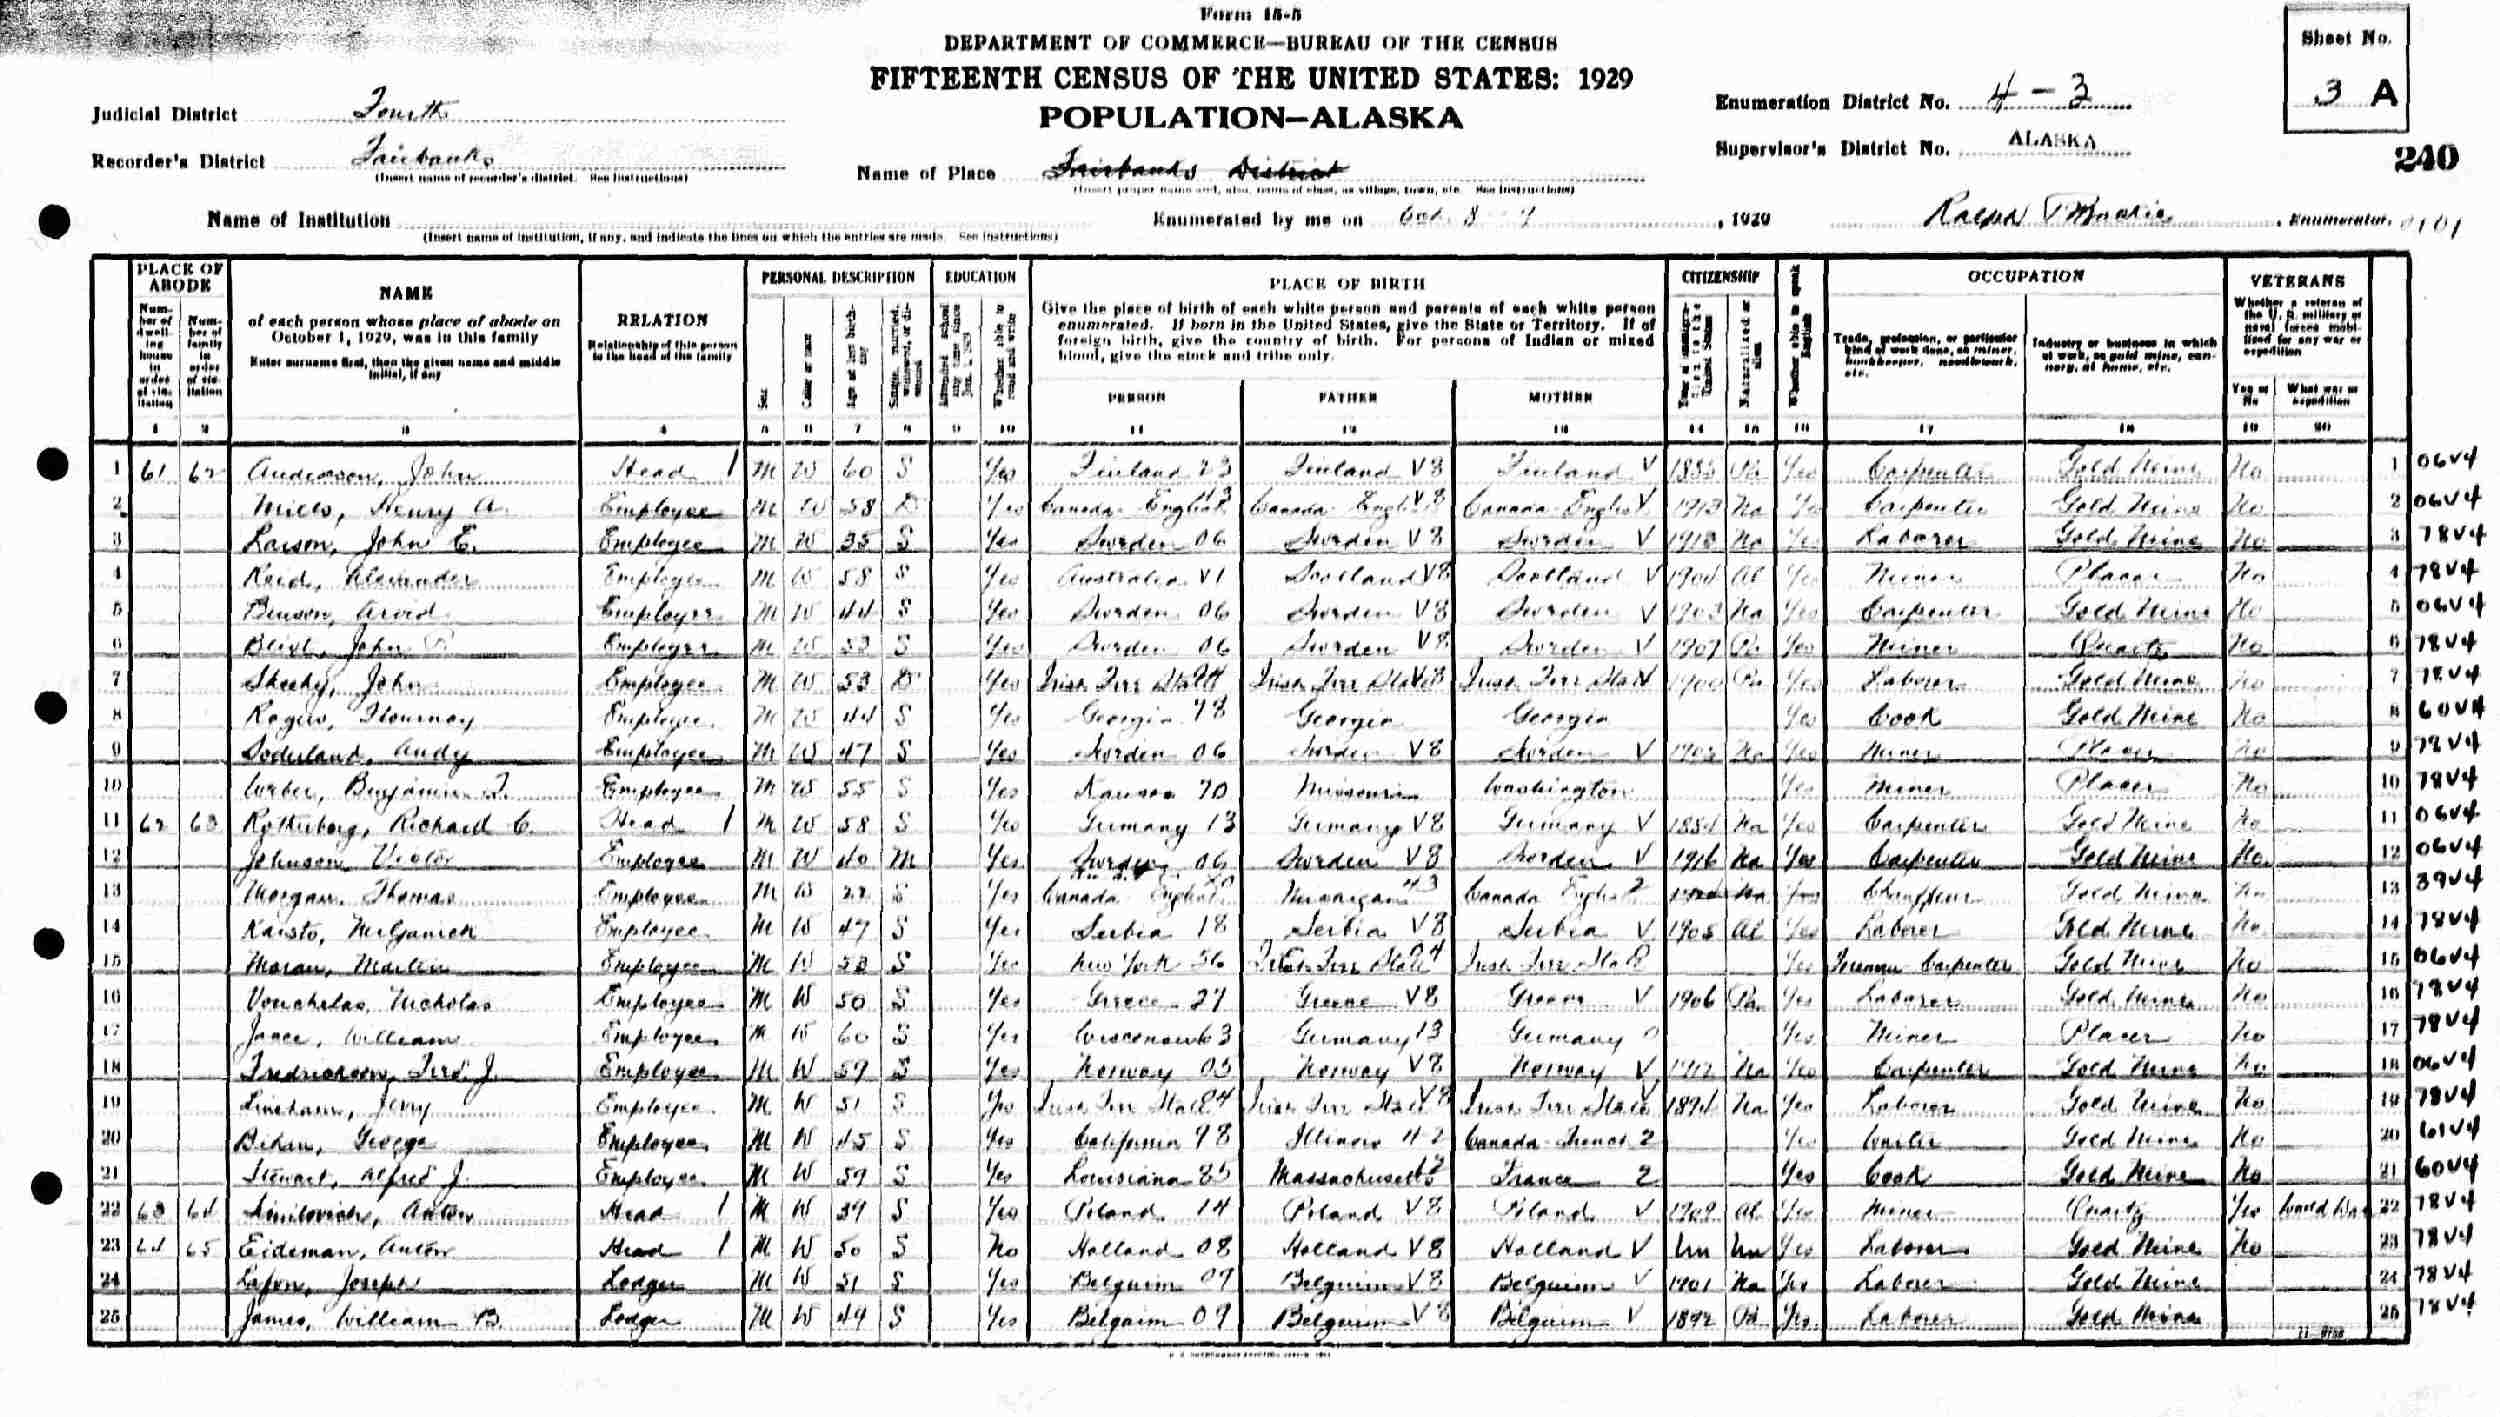 Form 15-5
DEPARTMENT OF COMMERCE—BUREAU OF THE CENSUS
FIFTEENTH CENSUS OF THE UNITED STATES: 1929
POPULATION—ALASKA
Sheet No.
3 A
240
Judicial District Fourth
Recorder's District Fairbanks
(Insert name of recorder's district. See instructions)
Enumeration District No. 4 - 3
Supervisor's District No. ALASKA
Name of Place Fairbanks District
(Insert proper name and, also, name of class, as village, town, etc. See instructions)
Name of Institution
(Insert name of institution, if any, and indicate the lines on which the entries are made. See instructions)
Enumerated by me on Oct. 8 - 9, 1929
Ralph, Enumerator.
PLACE OF ABODE
NAME
RELATION
PERSONAL DESCRIPTION
EDUCATION
PLACE OF BIRTH
CITIZENSHIP
Whether able to speak English
OCCUPATION
VETERANS
Number of dwelling house in order of visitation
Number of family in order of visitation
of each person whose place of abode on October 1, 1929, was in this family
Enter surname first, then the given name and middle initial, if any
Relationship of this person to the head of the family
Sex
Color or race
Age at last birthday
Single, married, widowed, or divorced
Whether able to read and write
Give the place of birth of each white person and parents of each white person enumerated. If born in the United States, give the State or Territory. If of foreign birth, give the country of birth. For persons of Indian or mixed blood, give the stock and tribe only.
PERSON FATHER MOTHER
Year of immigration to the United States
Naturalized or alien
Trade, profession, or particular kind of work done, as miner, bookkeeper, needlework, etc.
Industry or business in which at work, as gold mine, cannery, at home, etc.
Whether a veteran of the U. S. military or naval forces mobilized for any war or expedition
Yes or No
What war or expedition
1 2 3 4 5 6 7 8 9 10 11 12 13 14 15 16 17 18 19 20
1 61 62 Anderson, John Head 1 M W 60 S Yes Finland 23 Finland V8 Finland V Pa Yes Carpenter Gold Mine No 1 06V4
2 Henry A. Employee M W 58 D Yes Canada English Canada English V8 Canada English V 1913 Na Yes Carpenter Gold Mine No 2 06V4
3 Larson, John E. Employee M W 35 S Yes Sweden 06 Sweden V8 Sweden V Na Yes Laborer Gold Mine No 3 78V4
4 Reid, Alexander Employee M W 58 S Yes Australia V1 Scotland V8 Scotland V Al Yes Miner Placer No 4 78V4
5 Benson, Arvid Employee M W 44 S Yes Sweden 06 Sweden V8 Sweden V 1903 Na Yes Carpenter Gold Mine No 5 06V4
6 John Employee M W 53 S Yes Sweden 06 Sweden V8 Sweden V 1907 Pa Yes Miner Quartz No 6 78V4
7 Sheehy, John Employee M W 53 D Yes Irish Free State 04 Irish Free State V8 Irish Free State V 1900 Pa Yes Laborer Gold Mine No 7 78V4
8 Rogers, Flournoy Employee M W 44 S Yes Georgia 78 Georgia Georgia Yes Cook Gold Mine No 8 60V4
9 Soderlund, Andy Employee M W 47 S Yes Sweden 06 Sweden V8 Sweden V Na Yes Miner Placer No 9 78V4
10 Benjamin F. Employee M W 55 S Yes Kansas 70 Missouri Washington Yes Miner Placer No 10 78V4
11 62 63 Rothenberg, Richard C. Head 1 M W 58 S Yes Germany 13 Germany V8 Germany V Na Yes Carpenter Gold Mine No 11 06V4
12 Johnson, Victor Employee M W 40 M Yes Sweden 06 Sweden V8 Sweden V 1916 Na Yes Carpenter Gold Mine No 12 06V4
13 Morgan, Thomas Employee M W 22 S Yes Canada English Michigan 43 Canada English 2 Yes Chauffeur Gold Mine No 13 39V4
14 Employee M W 47 S Yes Serbia 18 Serbia V8 Serbia V 1905 Al Yes Laborer Gold Mine No 14 78V4
15 Moran, Martin Employee M W 52 S Yes New York 56 Irish Free State 04 Irish Free State Yes Foreman Carpenter Gold Mine No 15 06V4
16 Vouchelas, Nicholas Employee M W 50 S Yes Greece 27 Greece V8 Greece V 1906 Pa Yes Laborer Gold Mine No 16 78V4
17 William Employee M W 60 S Yes Wisconsin 63 Germany 13 Germany 0 Yes Miner Placer No 17 78V4
18 Fredrickson, Fred J. Employee M W 59 S Yes Norway 05 Norway V8 Norway V 1912 Na Yes Carpenter Gold Mine No 18 06V4
19 Linehan, Jerry Employee M W 51 S Yes Irish Free State 04 Irish Free State V8 Irish Free State V Na Yes Laborer Gold Mine No 19 78V4
20 George Employee M W 45 S Yes California 98 Illinois 42 Canada French 2 Yes Waiter Gold Mine No 20 61V4
21 Stewart, Alfred J. Employee M W 59 S Yes Louisiana 85 Massachusetts France 2 Yes Cook Gold Mine No 21 60V4
22 63 64 Anton Head 1 M W 39 S Yes Poland 14 Poland V8 Poland V 1909 Al Yes Miner Quartz Yes World War 22 78V4
23 64 65 Eideman, Anton Head 1 M W 50 S No Holland 08 Holland V8 Holland V Un Un Yes Laborer Gold Mine No 23 78V4
24 Joseph Lodger M W 51 S Yes Belguim 09 Belguim V8 Belguim V 1901 Na Yes Laborer Gold Mine 24 78V4
25 James, William B. Lodger M W 49 S Yes Belguim 09 Belguim V8 Belguim V 1892 Pa Yes Laborer Gold Mine 25 78V4